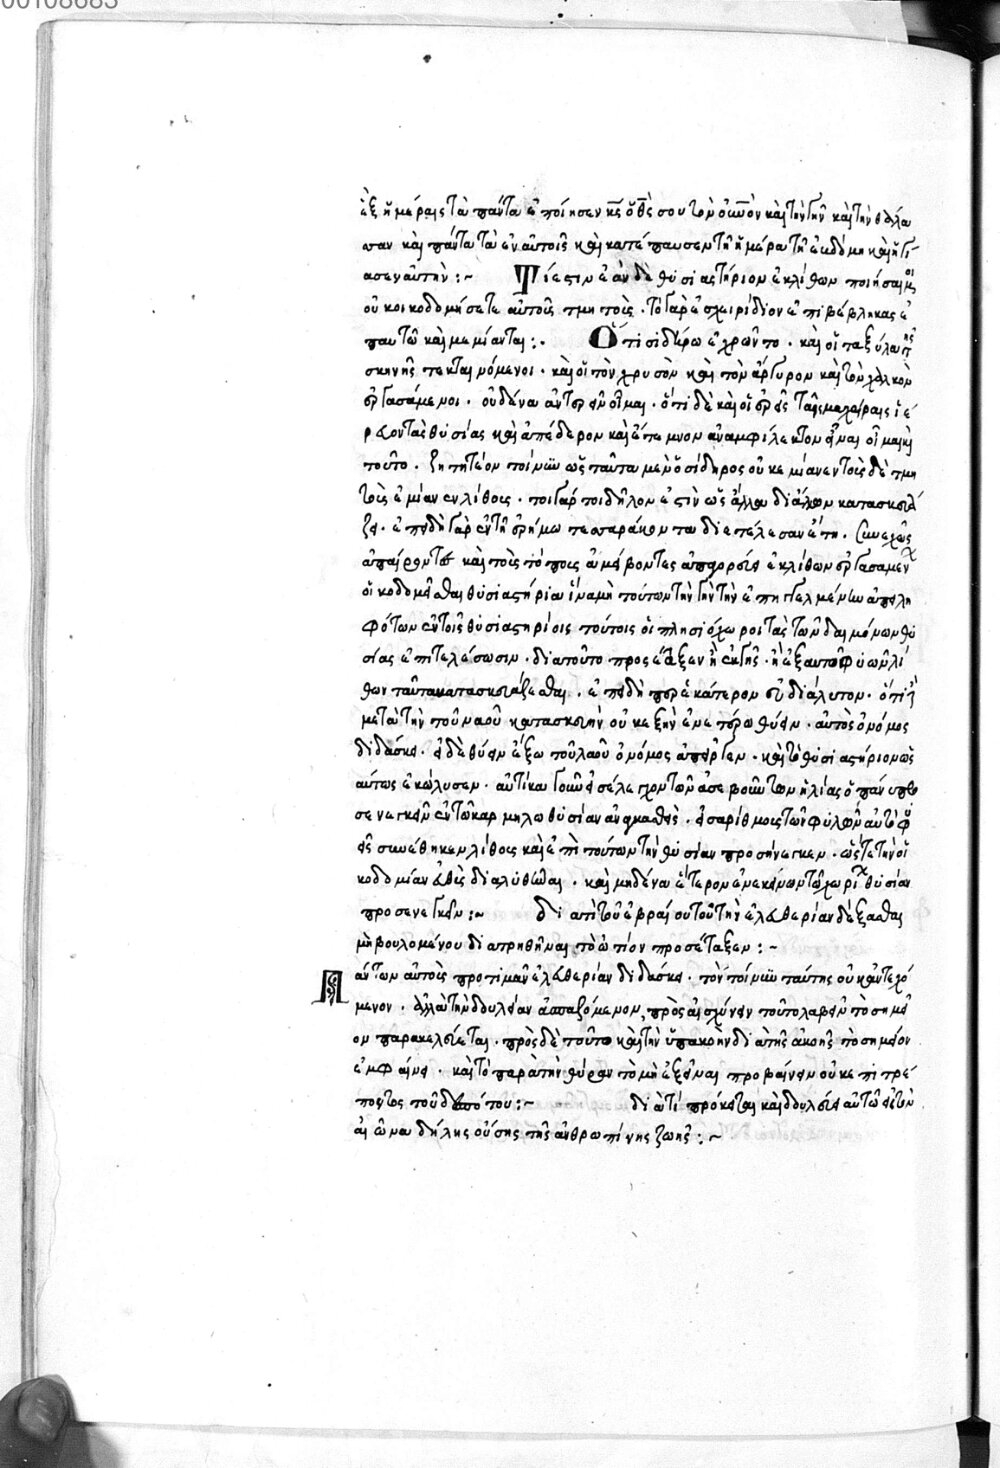 00108683
ἐξ ἡμέραις τὰ πάντα ἐποίησεν κς ὁ θς σου τὸν οὐνον καὶ τὴν γῆν καὶ τὴν θάλα
σσαν καὶ πάντα τὰ ἐν αὐτοῖς καὶ κατέπαυσεν τῆ ἡμέρα τῆ ἑβδόμη καὶ ἡγί
ασεν αὐτὴν :~ Τί ἐστιν ἐὰν δὲ θυσιαστήριον ἐκ λίθων ποιήσαι μοι
οὐκ οἰκοδομήσετε αὐτοὺς τμητοὺς · τὸ γὰρ ἐγχειρίδιον ἐπιβέβληκας ἐ
π αυτῶ καὶ μεμίανται :. Ὅτι σιδήρω ἐχρῶντο · καὶ οἱ τα ξύλα τῆς
σκηνῆς τεκταινόμενοι · καὶ οἱ τὸν χρυσὸν καὶ τὸν ἄργυρον καὶ τὸν χαλκὸν
ἐργασάμενοι · οὐδένα ἀντερεῖν οἶμαι · ὅτι δὲ καὶ οἱ ἱερεῖς ταῖς μαχαίραις ἱέ
ρευον τὰς θυσίας καὶ ἀπέδερον καὶ ἔτεμνον ἀναμφίλεκτον εἶναι οἶμαι καὶ
τοῦτο · ζητητέον τοίνυν ὡς ταῦτα μὲν ὁ σίδηρος οὐκ ἐμίανεν τοὺς δὲ τμη
τοὺς ἐμίανεν λίθους · τοιγάρτοι δῆλον ἐστὶν ὡς ἄλλα δι άλλων κατασκευά
ζει · ἐπειδὴ γὰρ ἐν τῆ ἐρήμω τεσσαράκοντα διετέλεσαν ἔτη · συνεχῶς
ἀπαίροντες καὶ τοὺς τόπους ἀμείβοντες ἀπαγορεύει ἐκ λίθων ἐργασαμένων
οἰκοδομεῖσθαι θυσιαστήρια ἵνα μὴ τούτων τὴν γῆν τὴν ἐπηγγελμένην ἀπειλη
φότων ἐν τοῖς θυσιαστηρίοις τούτοις οἱ πλησιόχωροι τὰς τῶν δαιμόνων θυ
σίας ἐπιτελέσωσιν · διατοῦτο προσέταξεν ἢ ἐκ γῆς · ἢ ἐξ αυτοφυῶν λί
θων ταῦτα κατασκευάζεσθαι · ἐπειδὴ περ ἑκάτερον εὐδιάλυτον · ὅτι γὰρ
μετὰ τὴν τοῦ ναοῦ κατασκευὴν οὐκ ἐξῆν ἑτέρωθι θύειν · αὐτὸς ὁ νόμος
διδάσκει · εἰ δὲ θύειν ἔξω τοῦ ναοῦ ὁ νόμος ἀπεῖργεν · καὶ τὸ θυσιαστήριον ὡς
αύτως ἐκώλυσεν · αὐτίκα γοῦν εἰς ἔλεγχον τῶν ἀσεβούντων ἠλίας ὁ πάνυ προ
σενεγκεῖν ἐν τῶ καρμήλω θυσίαν ἀναγκασθεὶς · ἰσαρίθμους τῶν φυλῶν αὐτοφυ
εῖς συνέθηκεν λίθους καὶ ἐπὶ τούτων τὴν θυσίαν προσήνεγκεν · ὥστε τὴν οἰ
κοδομίαν εὐθὺς διαλυθῆναι · καὶ μηδένα ἕτερον ἐν ἐκείνω τῶ χωρίω θυσίαν
προσενεγκεῖν :~ διατί τοῦ ἑβραίου τοῦ τὴν ἐλευθερίαν δέξασθαι
μὴ βουλομένου διατρηθῆναι τὸ ὠτίον προσέταξεν :~
Πάντων αὐτοὺς προτιμᾶν ἐλευθερίαν διδάσκει · τὸν τοίνυν ταύτης οὐκ ἀντεχό
μενον · ἀλλὰ τὴν δουλείαν ἀσπαζόμενον, πρὸς αἰσχύνην τοῦτο λαβεῖν τὸ σημεῖ
ον παρακελεύεται · πρὸς δὲ τοῦτο καὶ τὴν ὑπακοὴν διὰ τῆς ἀκοῆς τὸ σημεῖον
ἐμφαίνει · καὶ τὸ παρὰ τὴν θύραν τὸ μὴ ἐξεῖναι προβαίνειν οὐκ ἐπιτρέ
ποντος τοῦ δεσπότου :~ διὰ τί πρόκειται καὶ δουλεύσει αὐτῶ εἰς τὸν
αἰῶνα δήλης οὔσης τῆς ἀνθρωπίνης ζωῆς :~